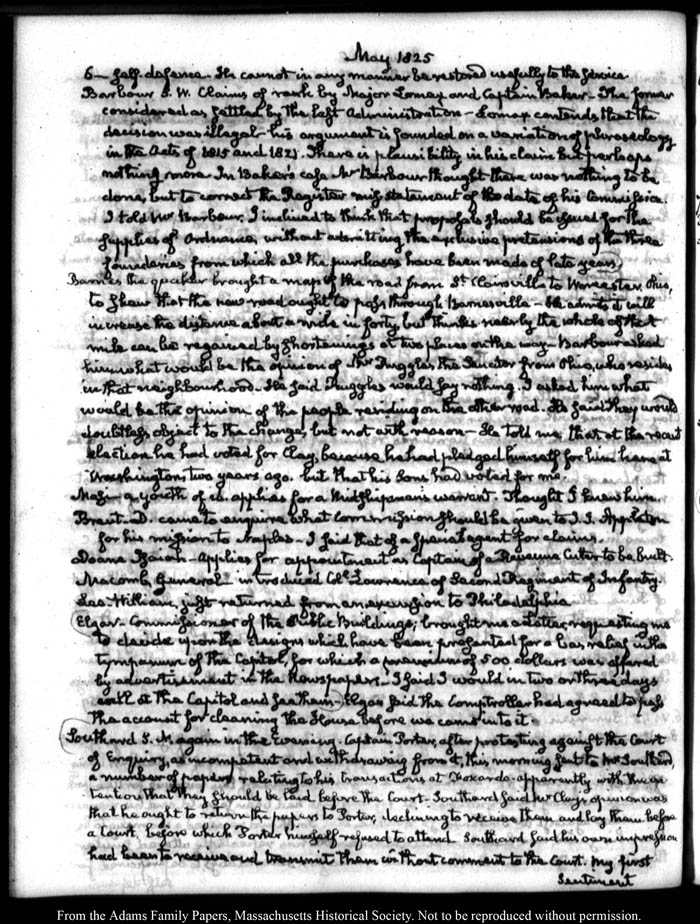 May 1825
6— self-defence. He cannot in any manner be restored usefully to the service
Barbour S. W. Claims of rank by Major Lomax and Captain Baker— The former
considered as settled by the last Administration— Lomax contends that the
decision was illegal— his argument is founded on a variation of phraseology
in the Acts of 1815 and 1821. There is plausibility in his claim but perhaps
nothing more. In Baker's case Mr Barbour thought there was nothing to be
done, but to correct the Register mis-statement of the date of his Commission.
I told Mr Barbour, I inclined to think that proposals should be issued for the
supplies of Ordnance, without admitting the exclusive pretensions of the three
foundaries from which all the purchases have been made of late years.
Barnes the quaker brought a map of the road from St Clairsville to Worcester, Ohio,
to shew that the new road ought to pass through Barnesville— He admits it will
increase the distance about a mile in forty, but thinks nearly the whole of that
mile can be regained by shortenings at two places on the way— Barbour asked
him what would be the opinion of Mr Ruggles, the Senator from Ohio, who resides
in that neighbourhood— He said Ruggles would say nothing. I asked him what
would be the opinion of the people residing on the other road. He said they would
doubtless object to the change, but not with reason— He told me that at the recent
election he had voted for Clay, because he had pledged himself for him here at
Washington two years ago. but that his Sons had voted for me.
a youth of applies for a Midshipman's warrant. Thought I knew him.
Brent. D. came to enquire what commission should be given to J. J. Appleton
for his mission to Naples— I said that of a special agent for claims.
Doane Isaiah— Applies for appointment as Captain of a Revenue Cutter to be built.
Macomb, General— introduced Coll. Lawrence of Second Regiment of Infantry.
Lee William, just returned from an excursion to Philadelphia
Elgar— Commissioner of the Public Buildings; brought me a Letter, requesting me
to decide upon the designs which have been presented for a bas relief in the
tympanum of the Capitol, for which a premium of 500 dollars was offered
by advertisement in the Newspapers— I said I would in two or three days
call at the Capitol and see them— Elgar said the Comptroller had agreed to pass
the account for cleaning the House before we came into it.
Southard S. N. again in the Evening. Captain Porter, after protesting against the Court
of Enquiry, as incompetent and withdrawing from it, this morning sent to Mr Southard,
a number of papers relating to his transactions at Foxardo— apparently with the in-
tention that they should be laid before the Court— Southard said Mr Clay's opinion was
that he ought to return the papers to Porter, declining to receive them and lay them before
a Court, before which Porter himself refused to attend. Southard said his own impression
had been to receive and transmit them without comment to the Court. My first
sentiment
From the Adams Family Papers, Massachusetts Historical Society. Not to be reproduced without permission.